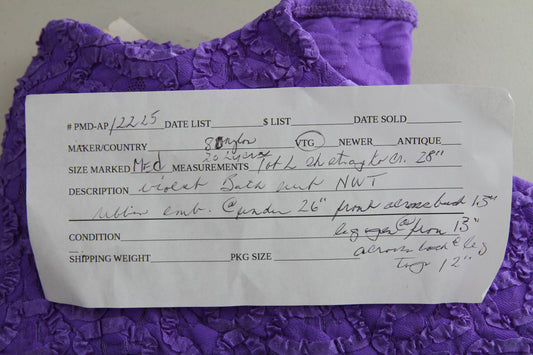 # PMD-AP 12225 DATE LIST $ LIST DATE SOLD
MAKER/COUNTRY 80 nylon VTG NEWER ANTIQUE
20 Lycra
SIZE MARKED Med MEASUREMENTS Tot L 28"
DESCRIPTION Violet Bath suit NWT
ribbon emb. @ under 26" front across bust 15"
CONDITION leg open @ from 13"
across back @ leg
SHIPPING WEIGHT PKG SIZE 12"